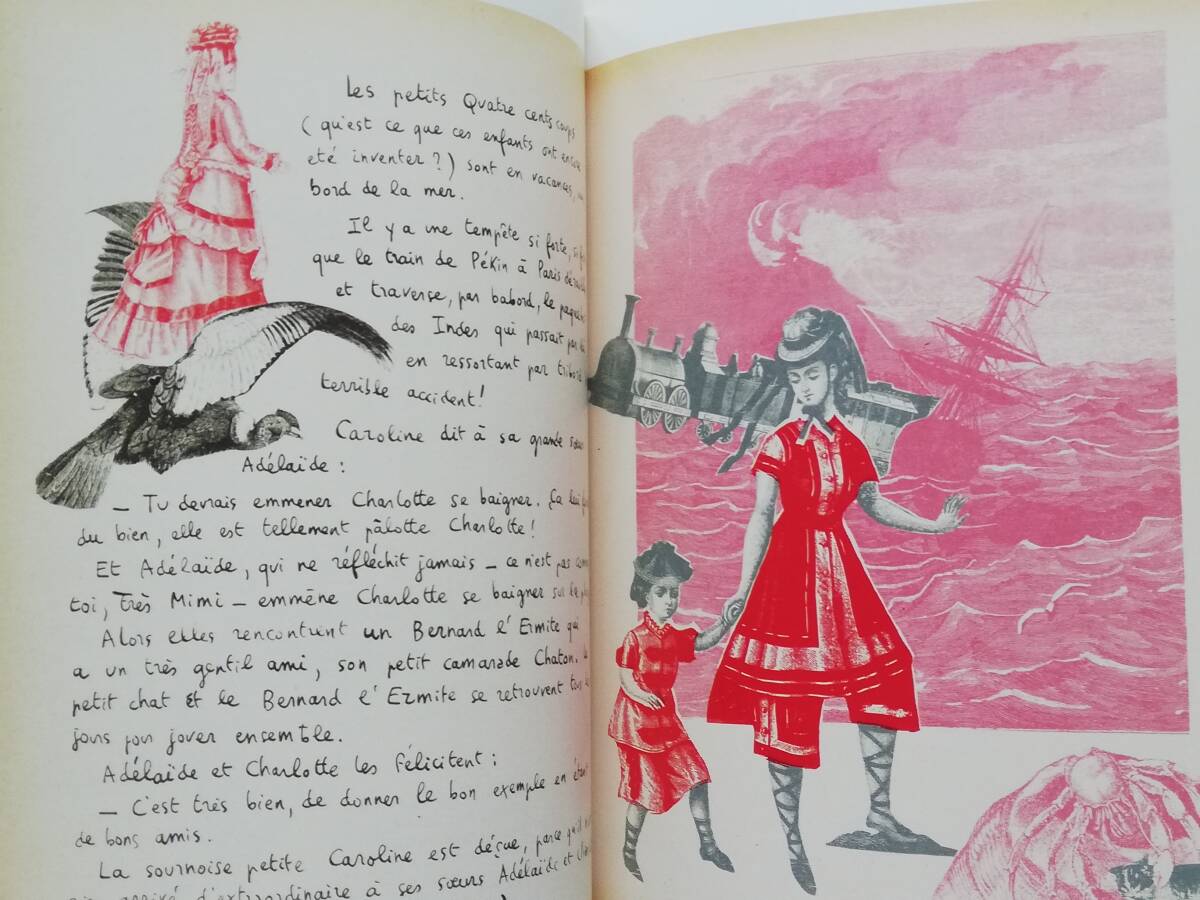 Les petits Quatre cents coups
(qu'est ce que ces enfants ont encore
eté inventer?) sont en vacances,
bord de la mer.
Il y a une tempête si forte, si
que le train de Pékin à Paris
et traverse, par babord, le
des Indes qui passait par
en ressortant par tribord
terrible accident!
Caroline dit à sa grande
Adélaïde :
— Tu devrais emmener Charlotte se baigner. Ça lui
du bien, elle est tellement pâlotte Charlotte!
Et Adélaïde, qui ne réfléchit jamais — ce n'est pas
toi, Très Mimi — emmène Charlotte se baigner sur la
Alors elles rencontrent un Bernard l'Ermite qui
a un très gentil ami, son petit camarade Chaton.
petit chat Et le Bernard l'Ermite se retrouvent
jours pour jouer ensemble.
Adélaïde et Charlotte les félicitent :
— C'est très bien, de donner le bon exemple en
de bons amis.
La sournoise petite Caroline est déçue, parce
arrivé d'extraordinaire à ses sœurs Adélaïde et